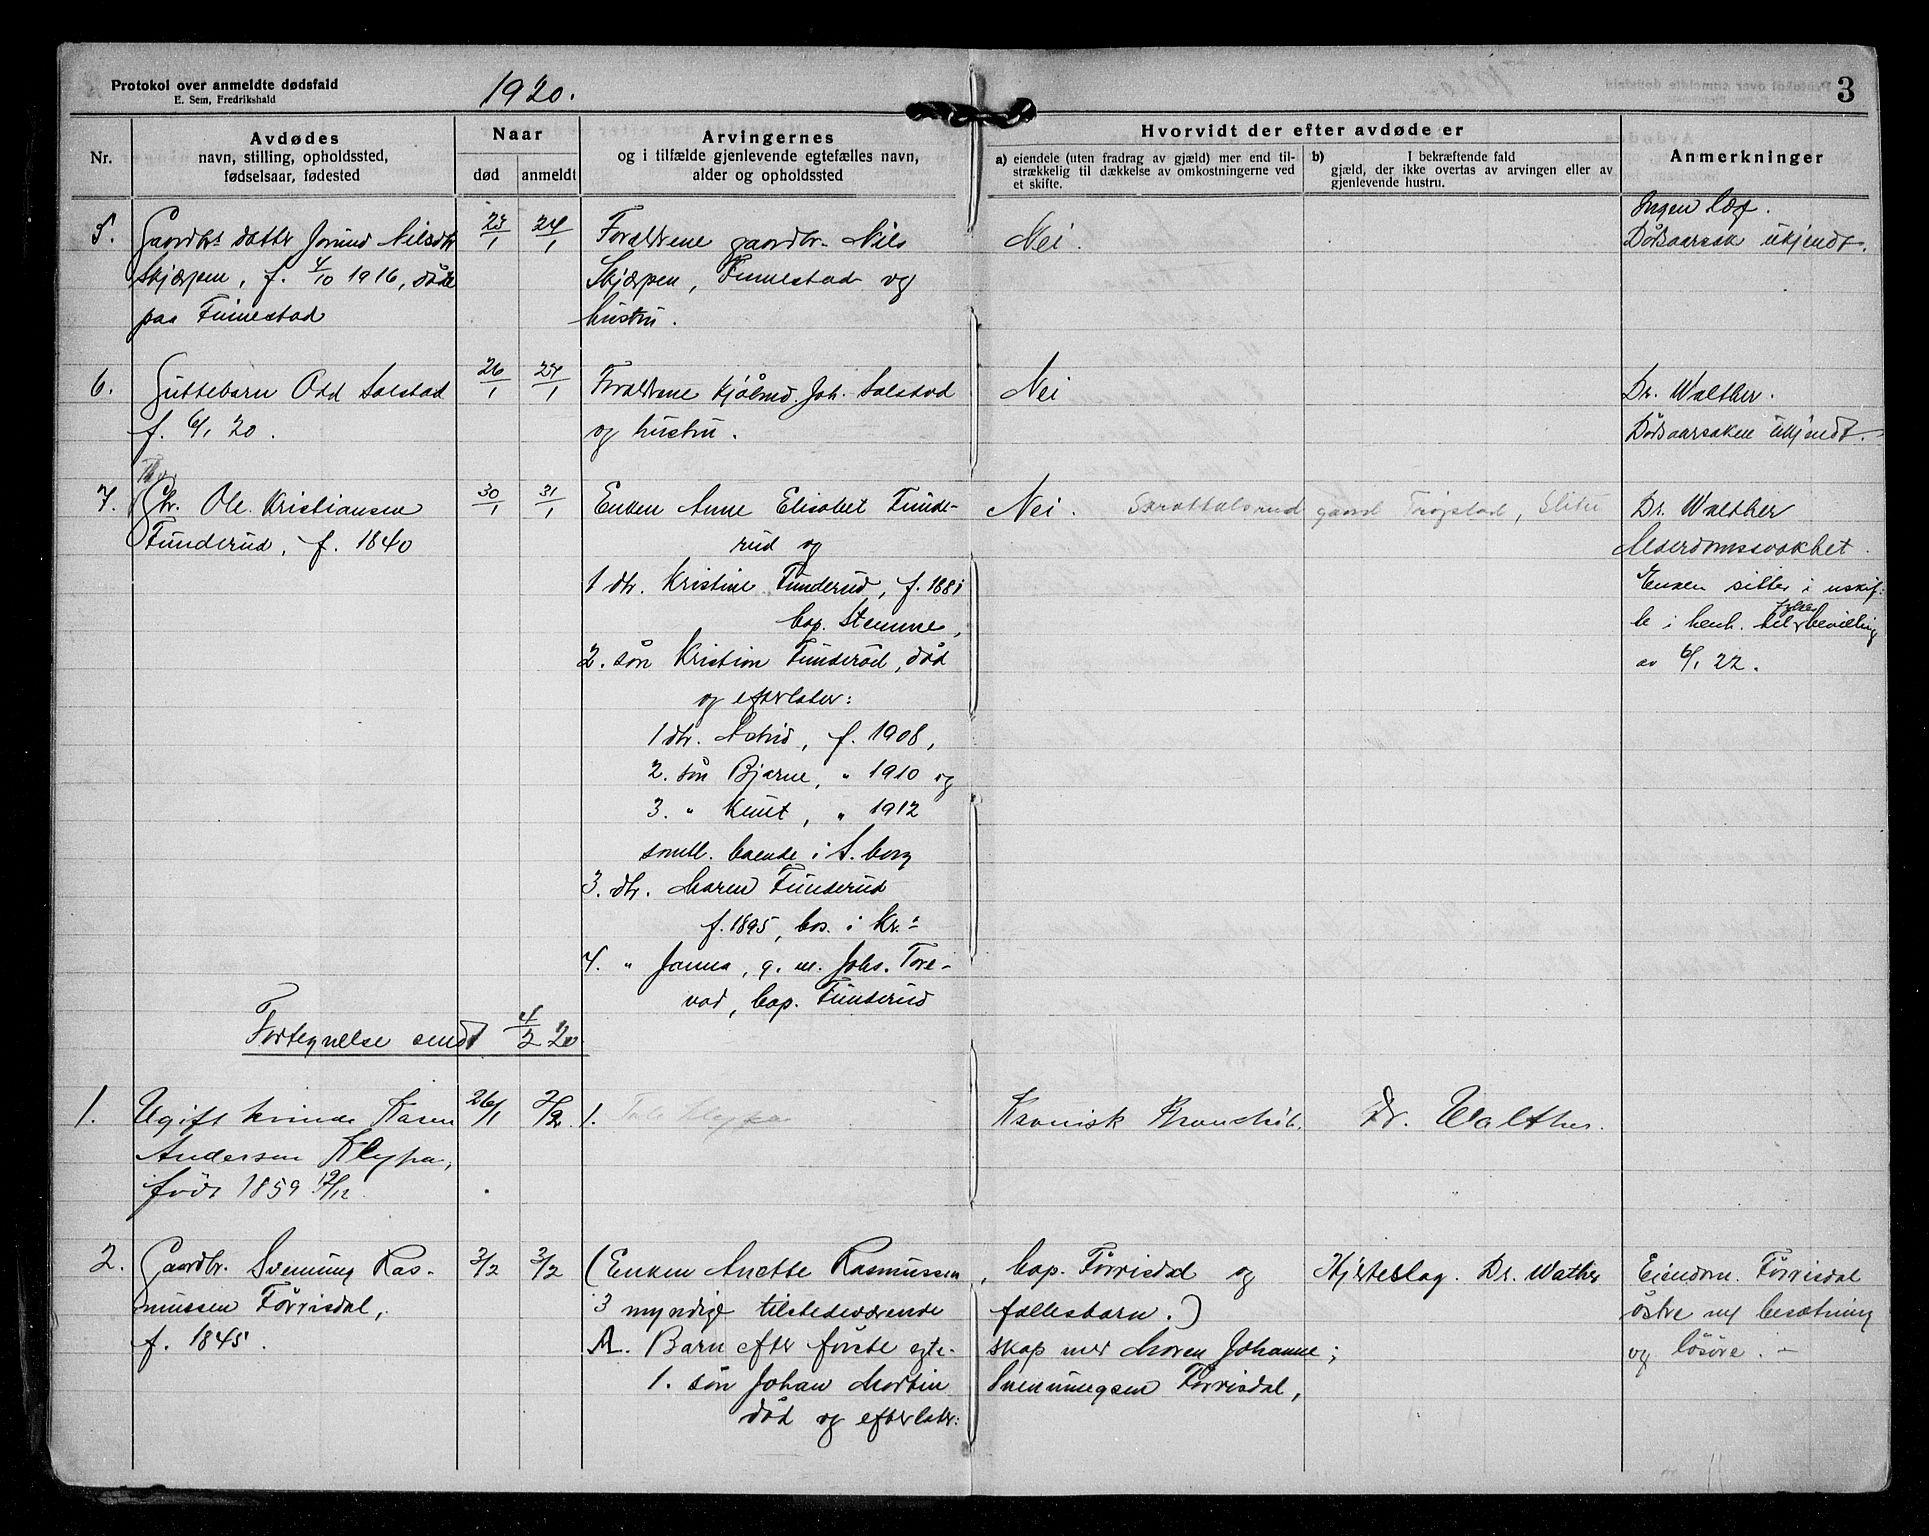 Protokol over anmeldte dødsfald
E. Sem, Fredrikshald
1920.
3
Nr.
Avdødes
navn, stilling, opholdssted,
fødselsaar, fødested
Naar
død
anmeldt
Arvingernes
og i tilfælde gjenlevende egtefælles navn,
alder og opholdssted
Hvorvidt der efter avdøde er
a) eiendele (uten fradrag av gjæld) mer end til-
strækkelig til dækkelse av omkostningerne ved
et skifte.
b) I bekræftende fald
gjæld, der ikke overtas av arvingen eller av
gjenlevende hustru.
Anmerkninger
5.
Gaardbr. datter Jorund Nilsdtr
Skjærpen, f. 4/10 1916, døde
paa Finnestad
23/1
24/1
Forældrene gaardbr. Nils
Skjærpen, Finnestad og
hustru.
Nei.
Ingen Læg.
Dødsaarsak ukjendt.
6.
Guttebarn Odd Solstad
f. 6/1 20.
26/1
27/1
Forældrene kjøbmd. Joh. Solstad
og hustru.
Nei
Dr. Walther.
Dødsaarsaken ukjendt.
7.
Gbr. Ole Kristiansen
Funderud, f. 1840
30/1
31/1
Enken Anne Elisabet Funde-
rud og
1 dtr. Kristine Funderud, f. 1881
bop. Stemme,
2. søn Kristian Funderud, død
og efterlater:
1 dtr. Astrid, f. 1908,
2. søn Bjarne, " 1910 og
3. " Knut, " 1912
samtl. boende i S.borg
3. dtr. Maren Funderud
f. 1895, bos. i Kr.a
4. " Janna, g. m. Johs. Tore-
vad, bop. Funderud
Nei. gaard Trøgstad, Slitu
Dr. Walther
Alderdomssvakhet.
Enken sitter i uskif-
te i henh. til fylkesbevilling
av 6/1 22.
Fortegnelse sendt 4/2 20
1.
Ugift kvinde Karen
Andersen Klypa,
født 1859 12/12
26/1
2/2
1.
Kronisk Bronchit.
Dr. Walther.
2.
Gaardbr. Svenning Ras-
mussen Førrisdal,
f. 1845
3/2
3/2
(Enken Anette Rasmussen, bop. Førrisdal og
3 myndige tilstedeværende fællesbarn.)
A. Barn efter første egte-skap med Maren Johanne;
1. søn Johan Martin Svenningsen Førrisdal,
død og efterlater:
Hjerteslag. Dr. Walther
Eiendom. Førrisdal
østre m/ besætning
og løsøre. –